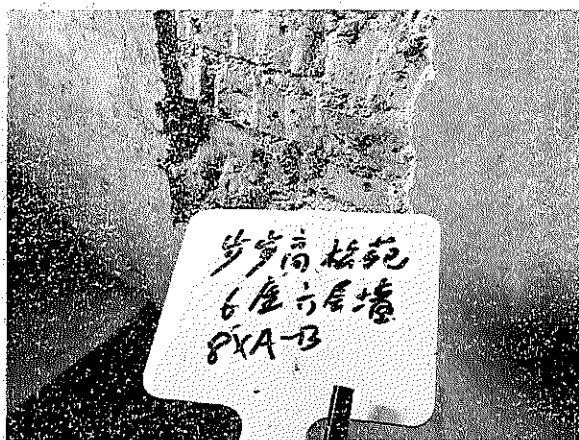 步步高楼苑
6座六层墙
8XA-B